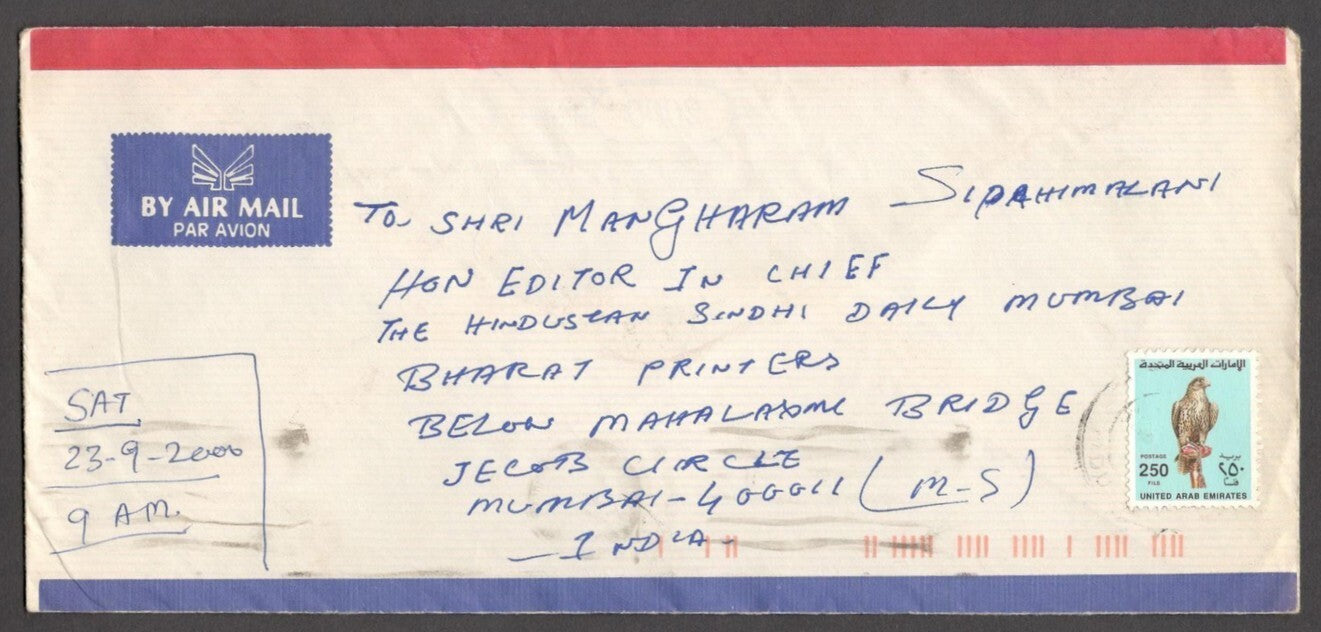 BY AIR MAIL
PAR AVION
TO SHRI MANGHARAM SIPAHIMALANI
HON EDITOR IN CHIEF
THE HINDUSTAN SINDHI DAILY MUMBAI
BHARAT PRINTERS
BELOW MAHALAXMI BRIDGE
JECOB CIRCLE
MUMBAI-400011 (M-S)
-INDIA-
SAT
23-9-2000
9 AM.
الإمارات العربية المتحدة
POSTAGE بريد
250 ٢٥٠
FILS فلس
UNITED ARAB EMIRATES